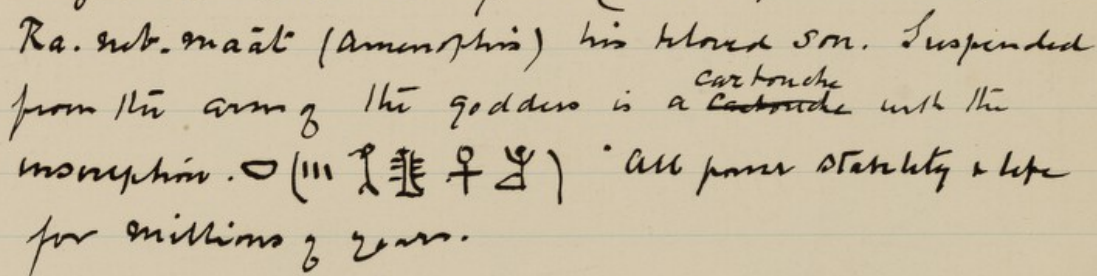 Ra. neb. maāt (Amenophis) his beloved son. Suspended
from the arm of the goddess is a cartouche with the
inscription. 𓎟 (||| 𓌀 𓊽 𓋹 𓁨) "All power stability & life
for millions of years.